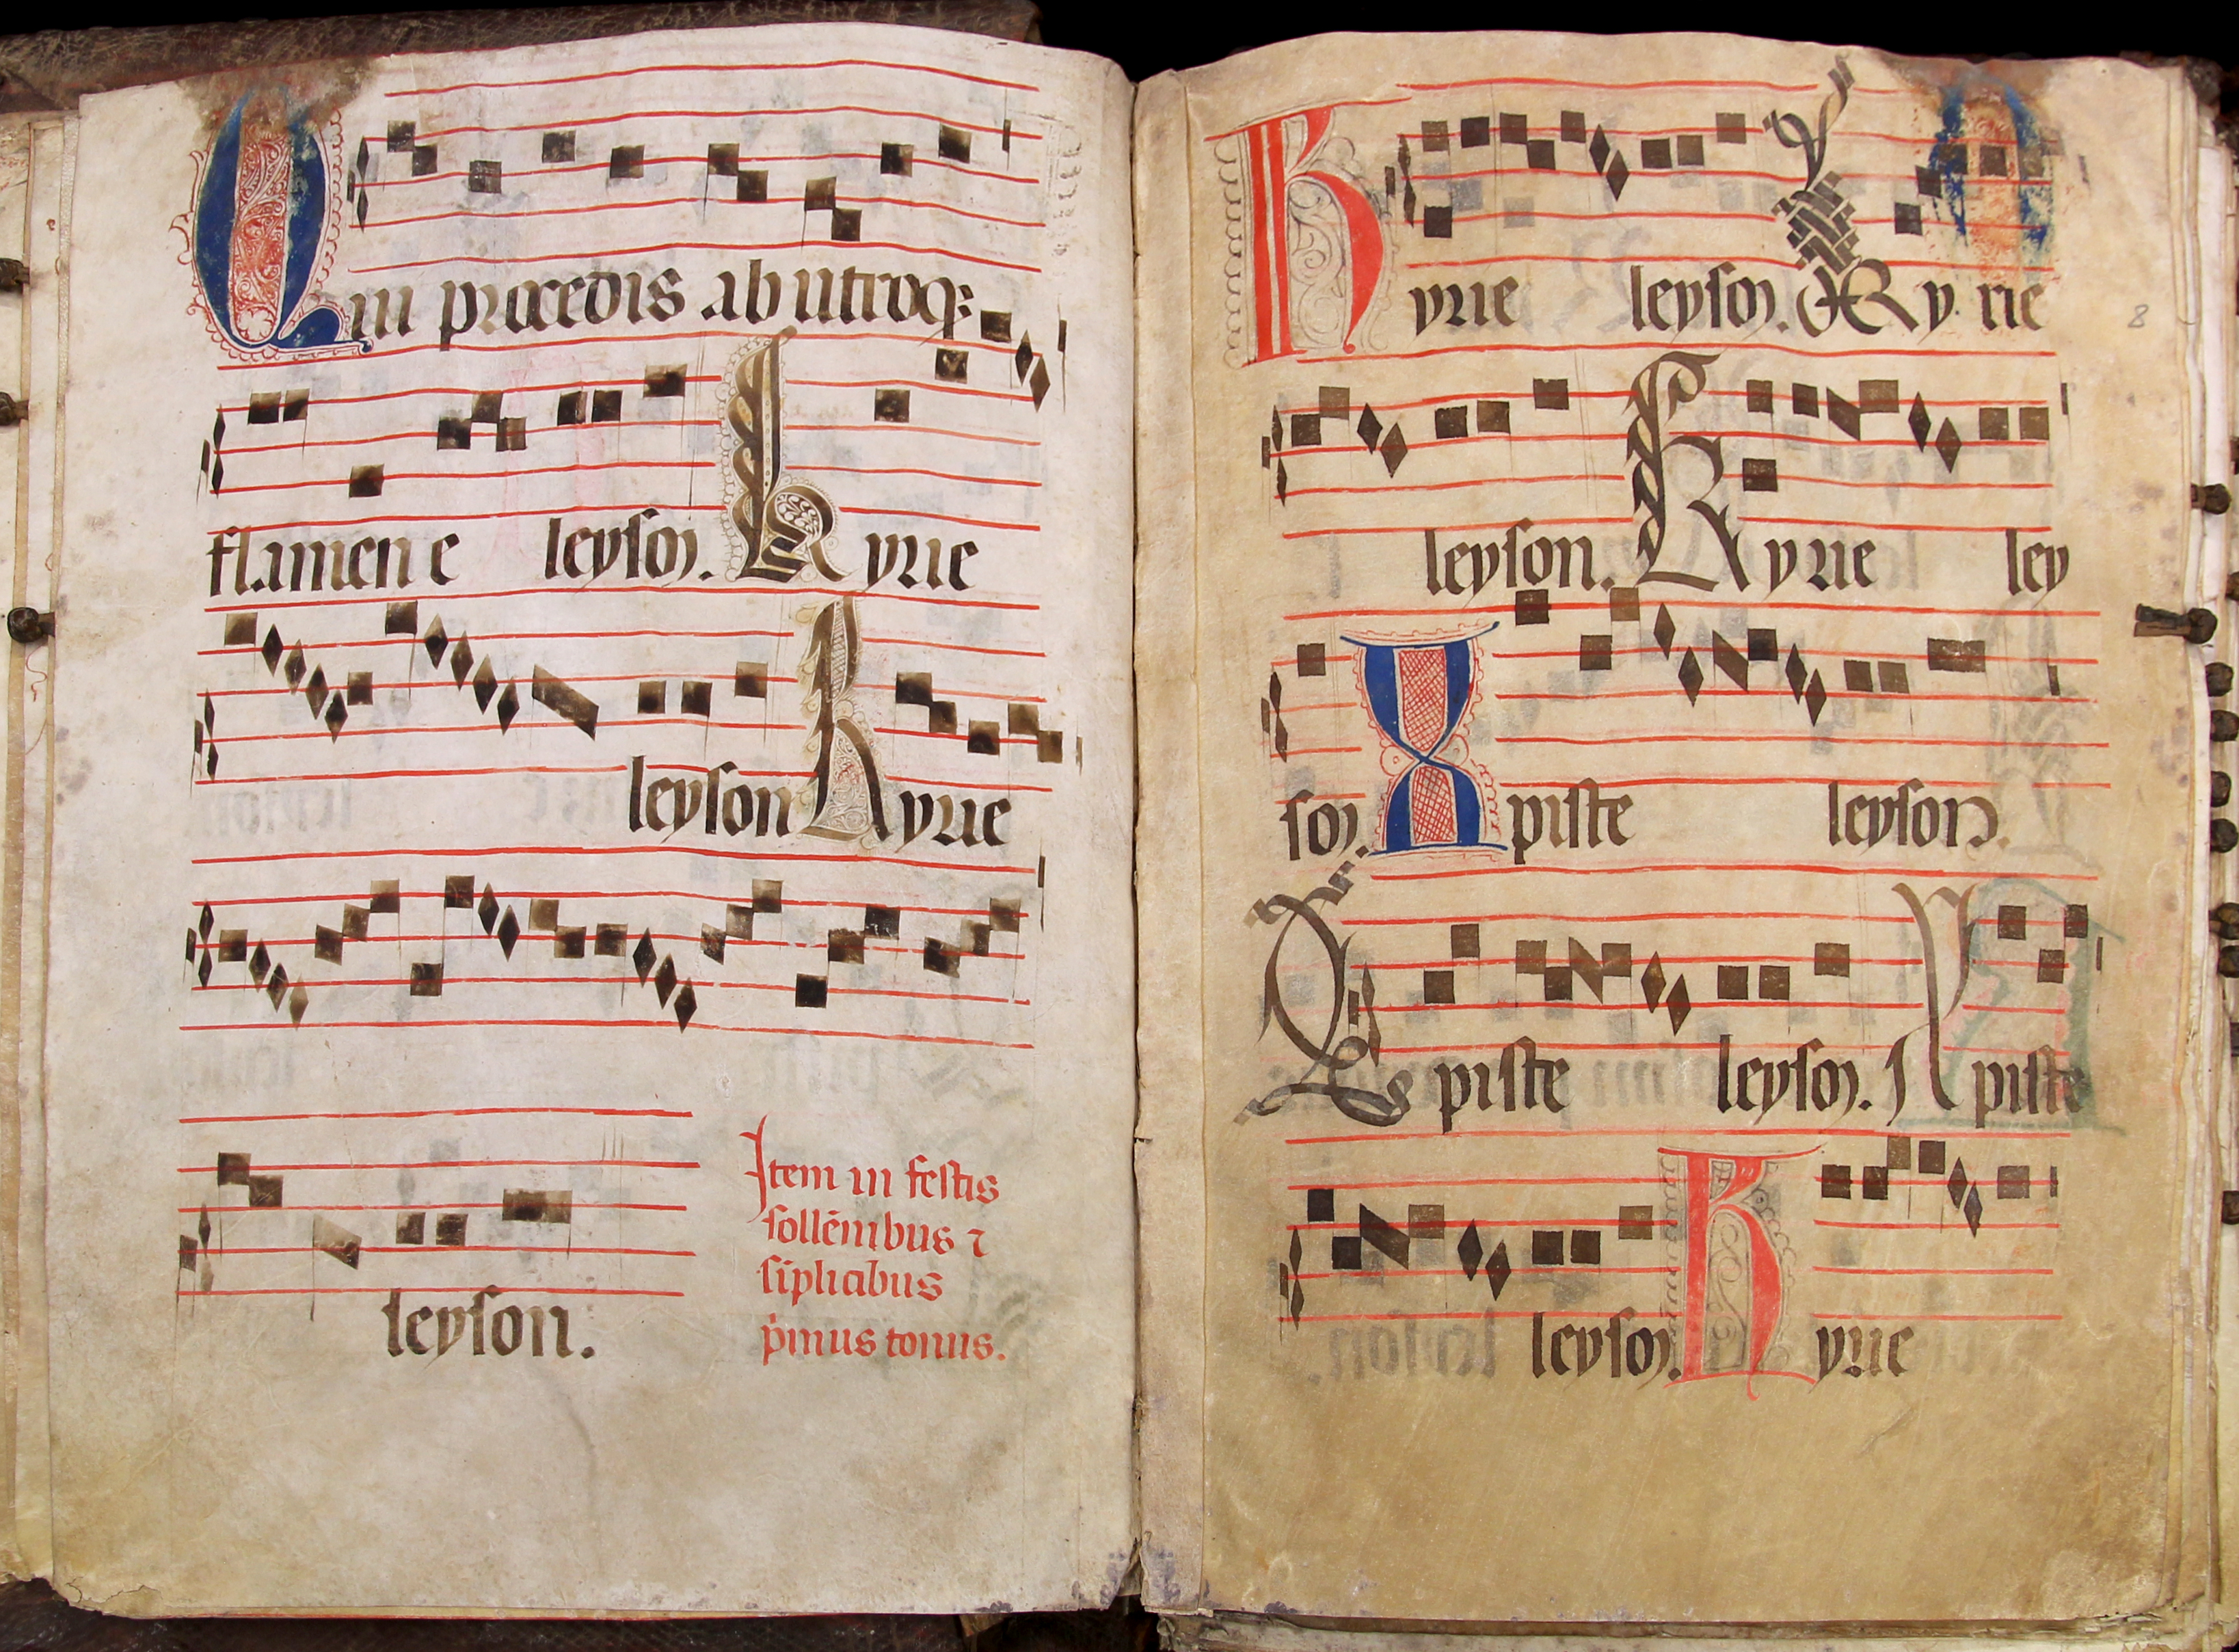 Qui procedis ab utroq;
flamen e leyson. Kyrie
leyson Kyrie
leyson.
Item in festis
sollēnibus ⁊
siplicibus
pimus tonus.
Kyrie leyson. Kyrie
leyson. Kyrie ley
son. Xpiste leyson.
Xpiste leyson. Xpiste
leyson. Kyrie
8